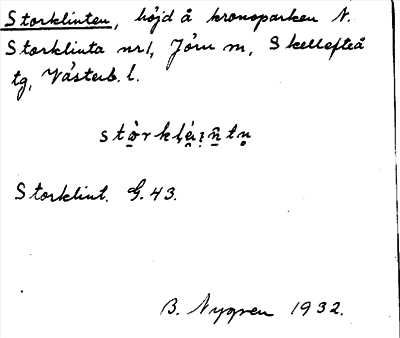 Storklinten, höjd å kronoparken N.
Storklinta nr 1, Jörn sn, Skellefteå
tg, Västerb. l.
Storklint. G. 43.
B. Nygren 1932.